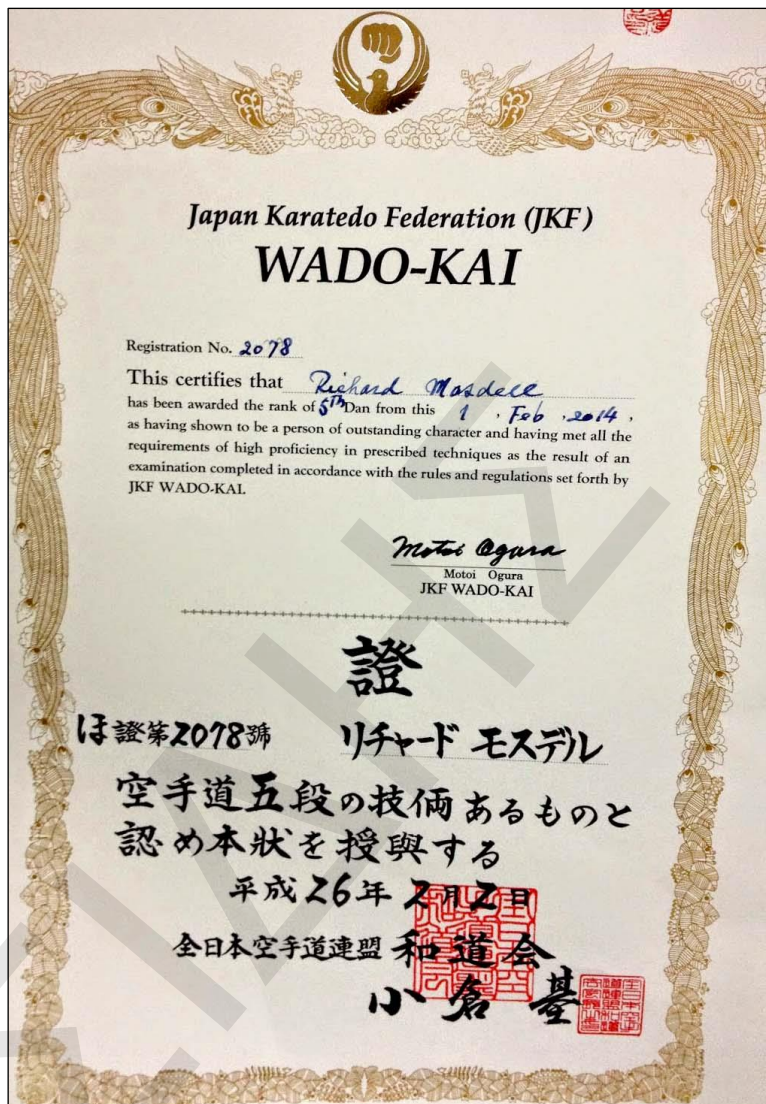 Japan Karatedo Federation (JKF)
WADO-KAI
Registration No. 2078
This certifies that Richard Mosdell
has been awarded the rank of 5th Dan from this 1 , Feb , 2014 ,
as having shown to be a person of outstanding character and having met all the
requirements of high proficiency in prescribed techniques as the result of an
examination completed in accordance with the rules and regulations set forth by
JKF WADO-KAI.
Motoi Ogura
Motoi Ogura
JKF WADO-KAI
證
ほ證第2078號 リチャード モスデル
空手道五段の技倆あるものと
認め本狀を授與する
平成26年2月2日
全日本空手道連盟 和道会
小倉 基